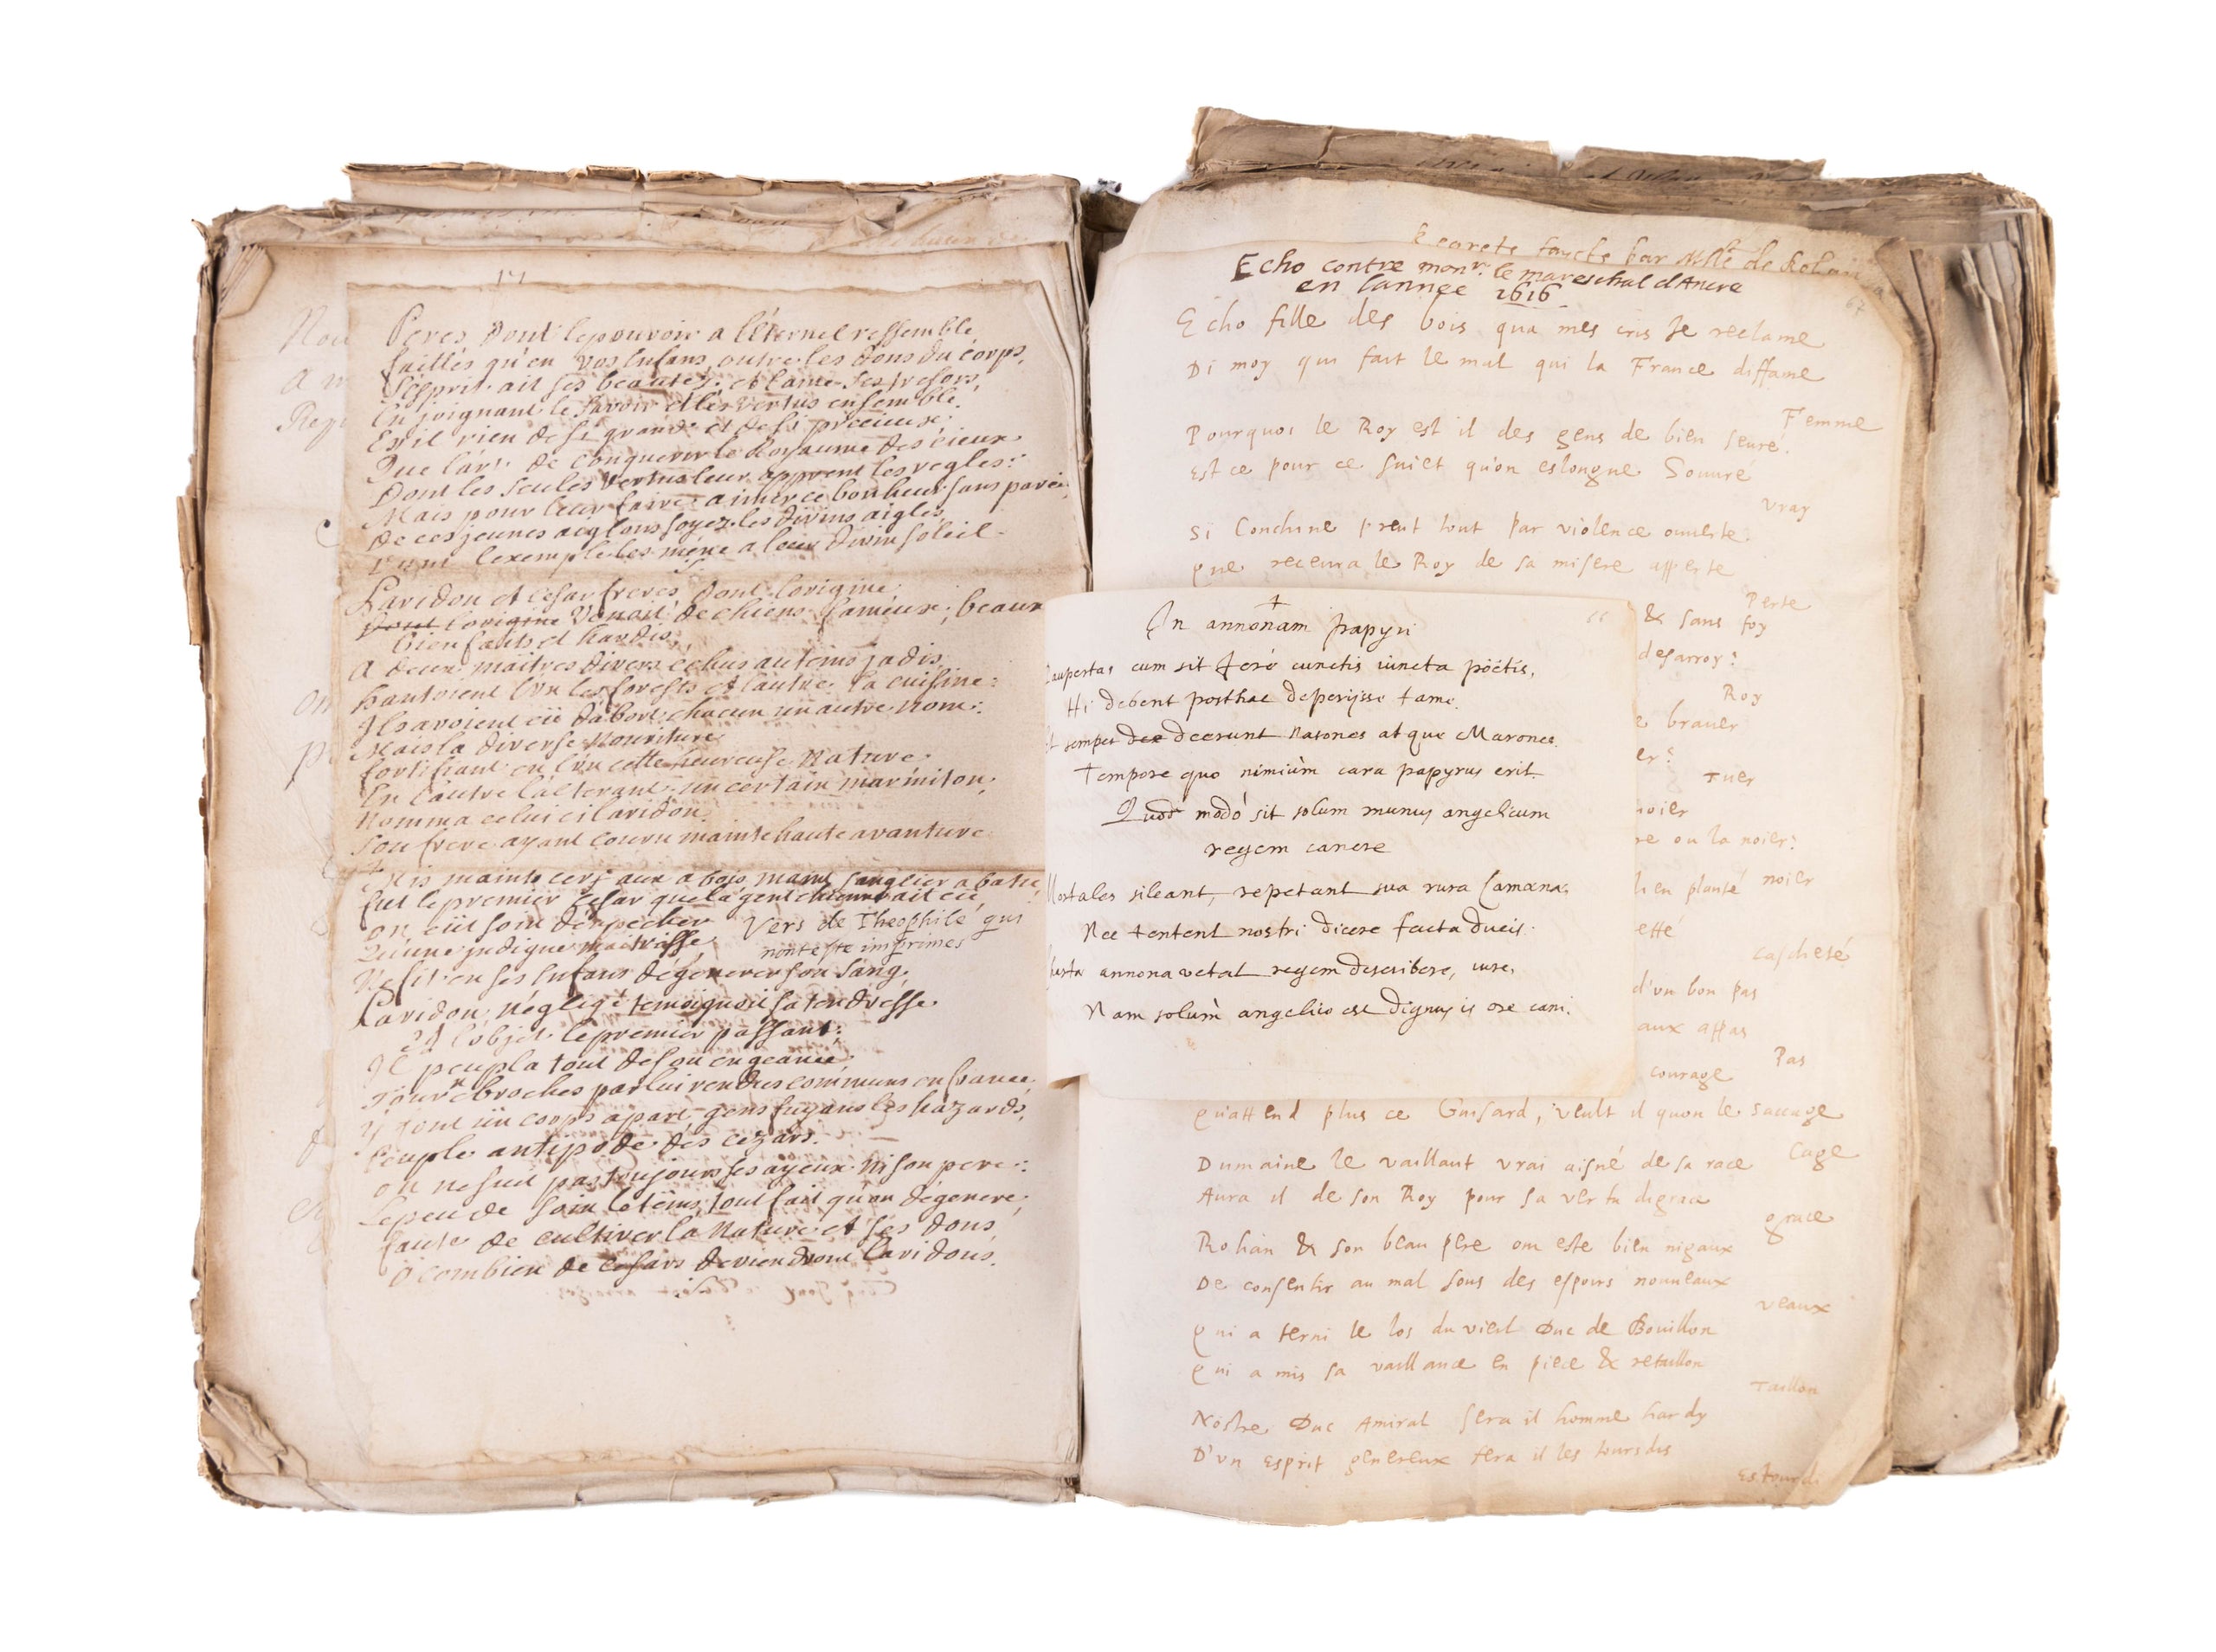 Peres dont le pouvoir a l'éternel ressemble
faittes qu'en vos enfans, outre les dons du corps,
l'esprit ait ses beautez, et l'ame ses tresors,
En joignant le savoir et les vertus ensemble.
Est il rien de si grand et de si precieux,
Que l'art de conquerir le Royaume des cieux
Dont les seules vertus leur apprent les regles:
Mais pour leur faire aimer ce bonheur sans pareil,
De ces jeunes aiglons soyez les divins aigles
l'exemple les mene a leur divin soleil.
Laridon et Cesar freres dont l'origine
dont l'origine Venait de chiens fameux, beaux
bien faits et hardis,
A deux maitres divers échus au tems jadis,
hantoient l'un les forests et l'autre la cuisine:
Ils avoient eü d'abort chacun un autre nom:
Mais la diverse nouriture
fortifiant en l'un cette heureuse Nature
En l'autre l'alterant, un certain marmiton,
Nomma celui ci laridon
Son frere ayant couru mainte haute avanture
Mis maints cerf aux abois maint sanglier abatu,
fut le premier Cesar que la gent chienne ait eü
on eüt soin d'empecher
Vers de Theophile qui
nont este imprimes
Qu'une indigne maitresse
Ne fit en ses enfans dégenerer son sang,
Laridon négligé temoignoit sa tendresse
A l'objet le premier passant;
Il peupla tout de son engeance,
Tourne broches par lui rendus communs en france
y font ün corps apart gens fuyans les hazards,
Peuple antipode des cezars.
on ne suit pas toujours ses ayeux ni son pere:
Le peu de soin le tems, tout fait qu'on dégenere;
faute de cultiver la Nature et ses dons
ô combien de cesars deviendront laridons.
par Mlle de Rohan
67
Echo contre monr. le mareschal d'Ancre
en lannee 1616
Echo fille des bois qua mes cris Je reclame
Di moy qui fait le mal qui la France diffame
Femme
Pourquoi le Roy est il des gens de bien seuré
Est ce pour ce suiet qu'on eslongne Souuré
vray
Si Conchine prent tout par violence ouuerte
que receura le Roy de sa misere apperte
Perte
& sans foy
desarroy?
Roy
e brauer
er?
Tuer
noier
re ou la noier?
noier
bien planté
etté
cascheté
d'vn bon pas
aux appas
Pas
courage
Qu'attend plus ce Guisard, veult il quon le saccage
Cage
Dumaine le vaillant vrai aisné de sa race
Aura il de son Roy pour sa vertu digrace
grace
Rohan & son beau pere ont este bien nigaux
De consentir au mal sous des espoirs nouueaux
veaux
Qui a terni le los du vieil Duc de Bouillon
Qui a mis sa vaillance en piece & retaillon
Taillon
Nostre Duc Amiral sera il homme hardy
D'vn esprit genereux fera il les tours dis
Estourdi
In annonam papyri
66
Paupertas cum sit ferè cunctis iüncta poëtis,
Hi debent posthac deperijsse fame.
Et semper dee deerunt Nasones atque Marones
Tempore quo nimiùm cara papyrus erit.
Quod modò sit solum munus angelicum
regem canere
Mortales sileant, repetant sua rura Camœnæ
Nec tentent nostri dicere facta ducis.
Charta annona vetat regem describere, iure,
Nam solùm angelico est dignus is ore cani.